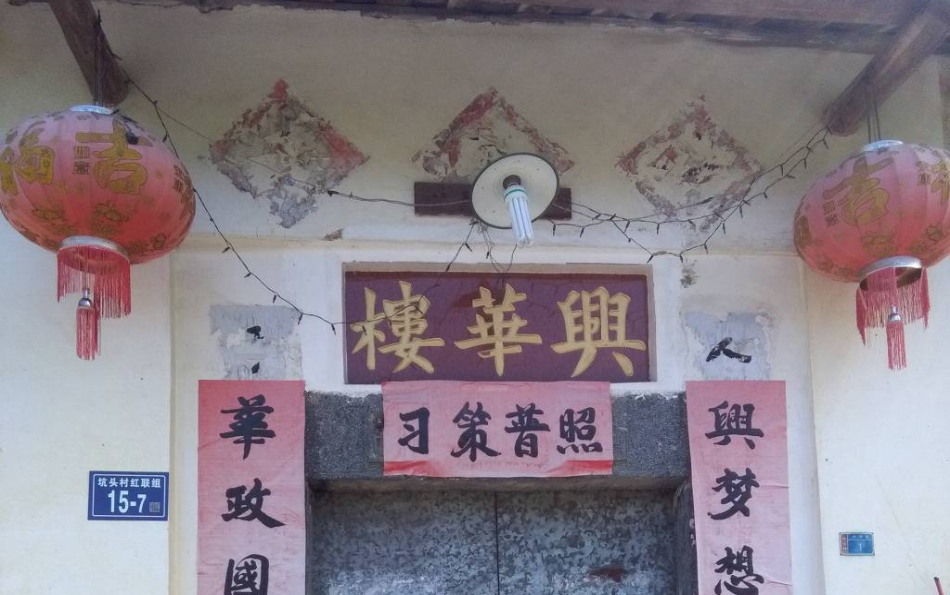 興華樓
照普策习
興梦想
華政國
人
坑头村红联组
15-7
吉
吉